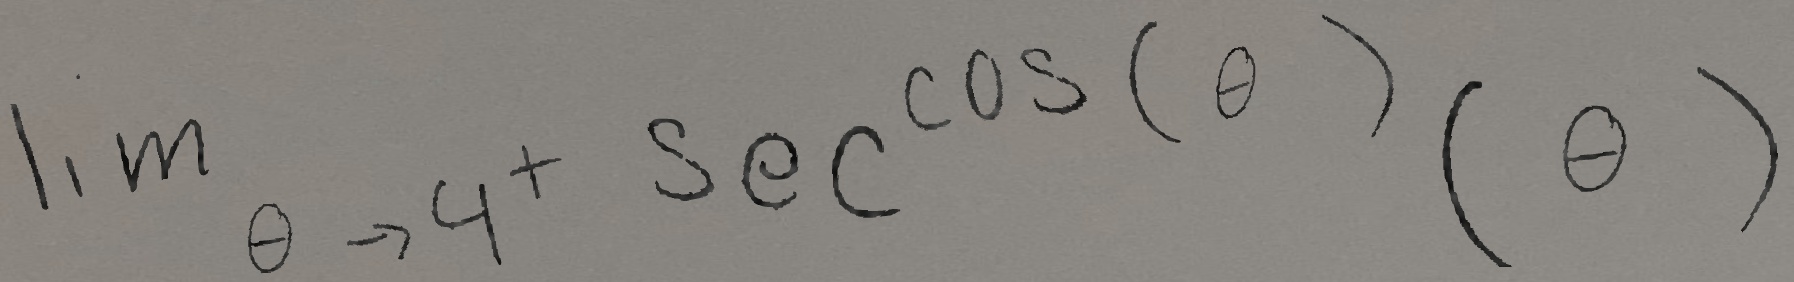 lim θ→4⁺ sec^cos(θ) (θ)